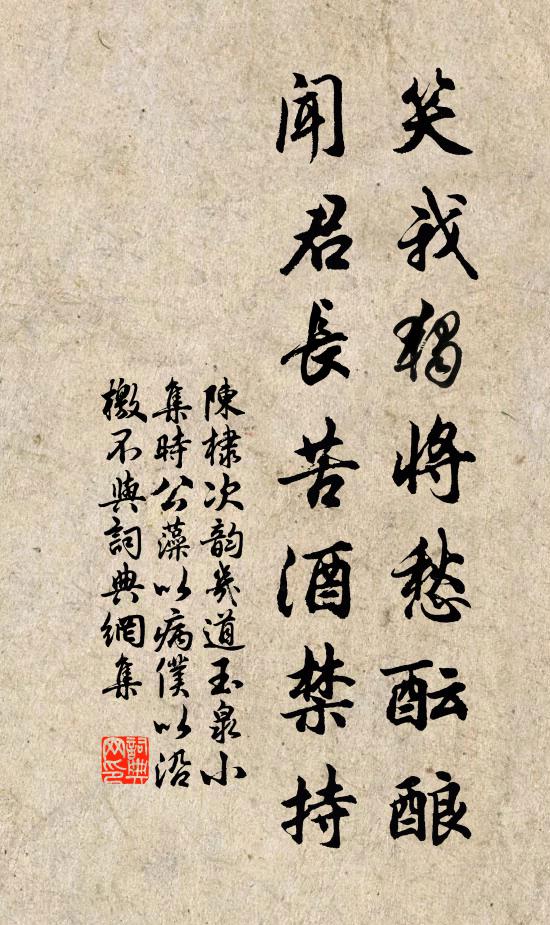 笑我独将愁酝酿
闻君長苦酒禁持
陳棣次韵幾道玉泉小
集時公藻以病僕以沿
檄不與詞典網集
詞典網印